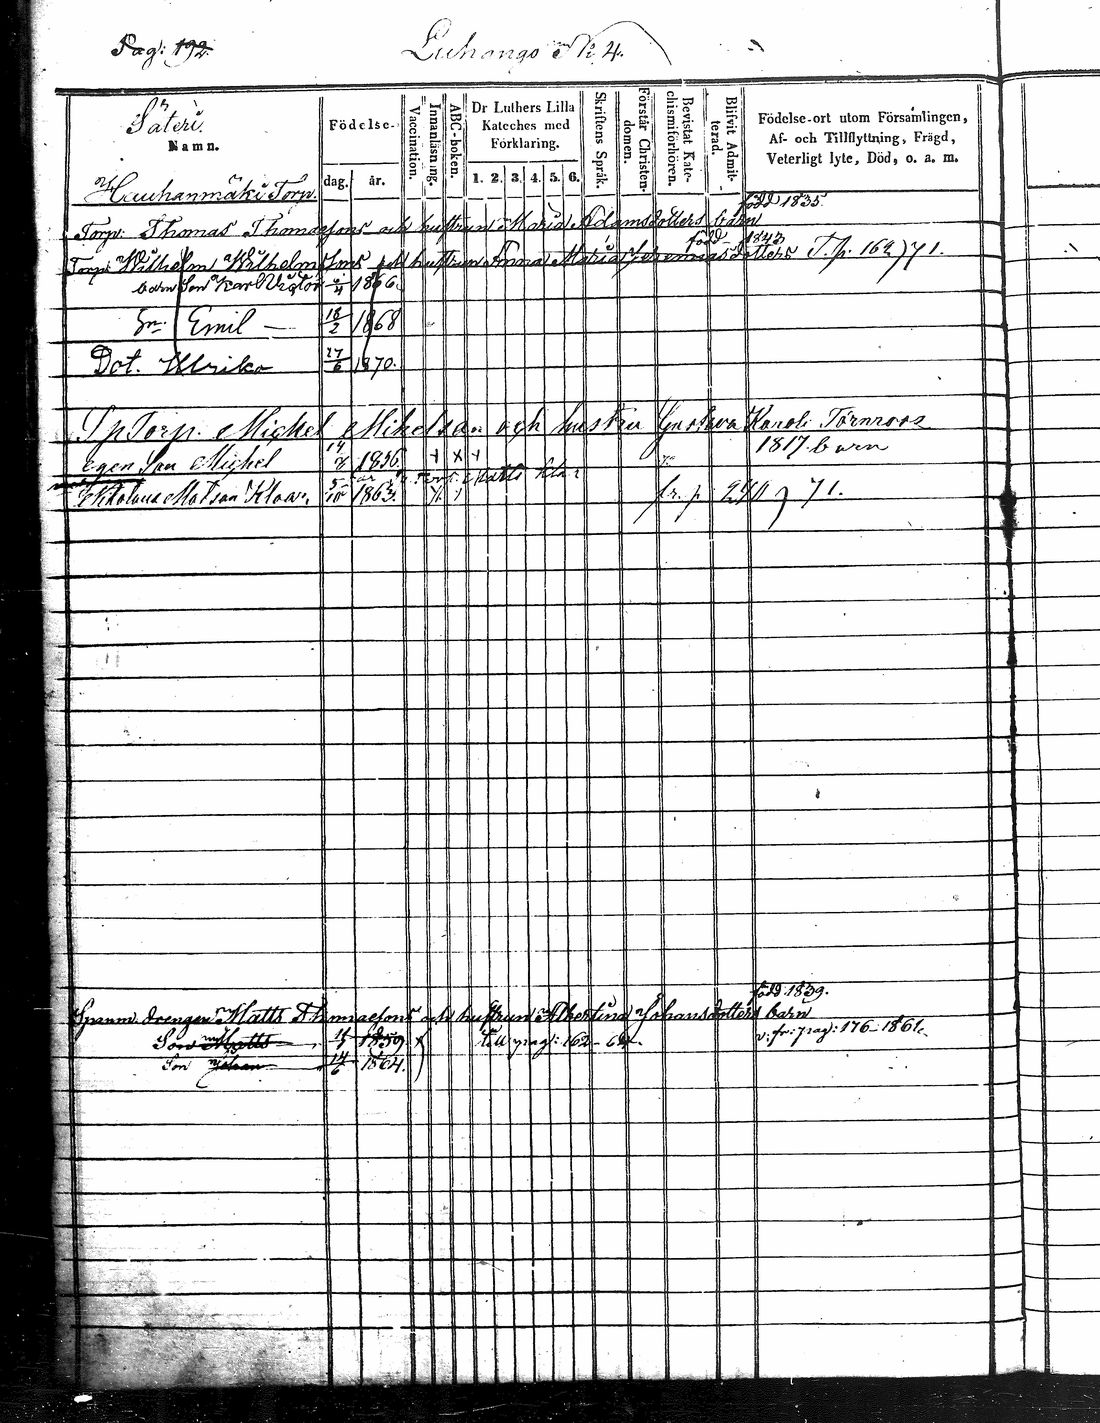 Pag: 192
Luhango No 4.
Säteri.
Namn.
Födelse-
dag.
år.
Vaccination.
Innanläsning.
ABC-boken.
Dr Luthers Lilla
Kateches med
Förklaring.
1. 2. 3. 4. 5. 6.
Skriftens Språk.
Förstår Christen-
domen.
Bevistat Kate-
chismiförhören.
Blifvit Admit-
terad.
Födelse-ort utom Församlingen,
Af- och Tillflyttning, Frägd,
Veterligt lyte, Död, o. a. m.
Hauhanmäki Torp.
född 1835
Torp. Thomas Thomassons och hustrun Maria Adamsdotters barn
född 1843
Torp. Wilhelm Wilhelmssons och hustrun Anna Maria Jeremiasdotters T. p. 162) 71.
barn Son Karl Victor /4 1866.
Sn. Emil — 18/2 1868
Dot. Ulrika 27/6 1870.
Sp Torp. Michel Mikelsson och hustru Gustava Karoli Törnroos
1817 barn
egen son Michel 14/8 1856 x x x
Matts
Matsson 5/10 1863. fr. p. 240) 71.
född 1839.
Spanm. drengen Matts Thomassons och hustrun Albertina Johansdotters barn
Son Matts 1/1 1859 x Till pag: 162 - 62. v. fr: pag: 176 - 1861.
Son Johan 14/6 1864.